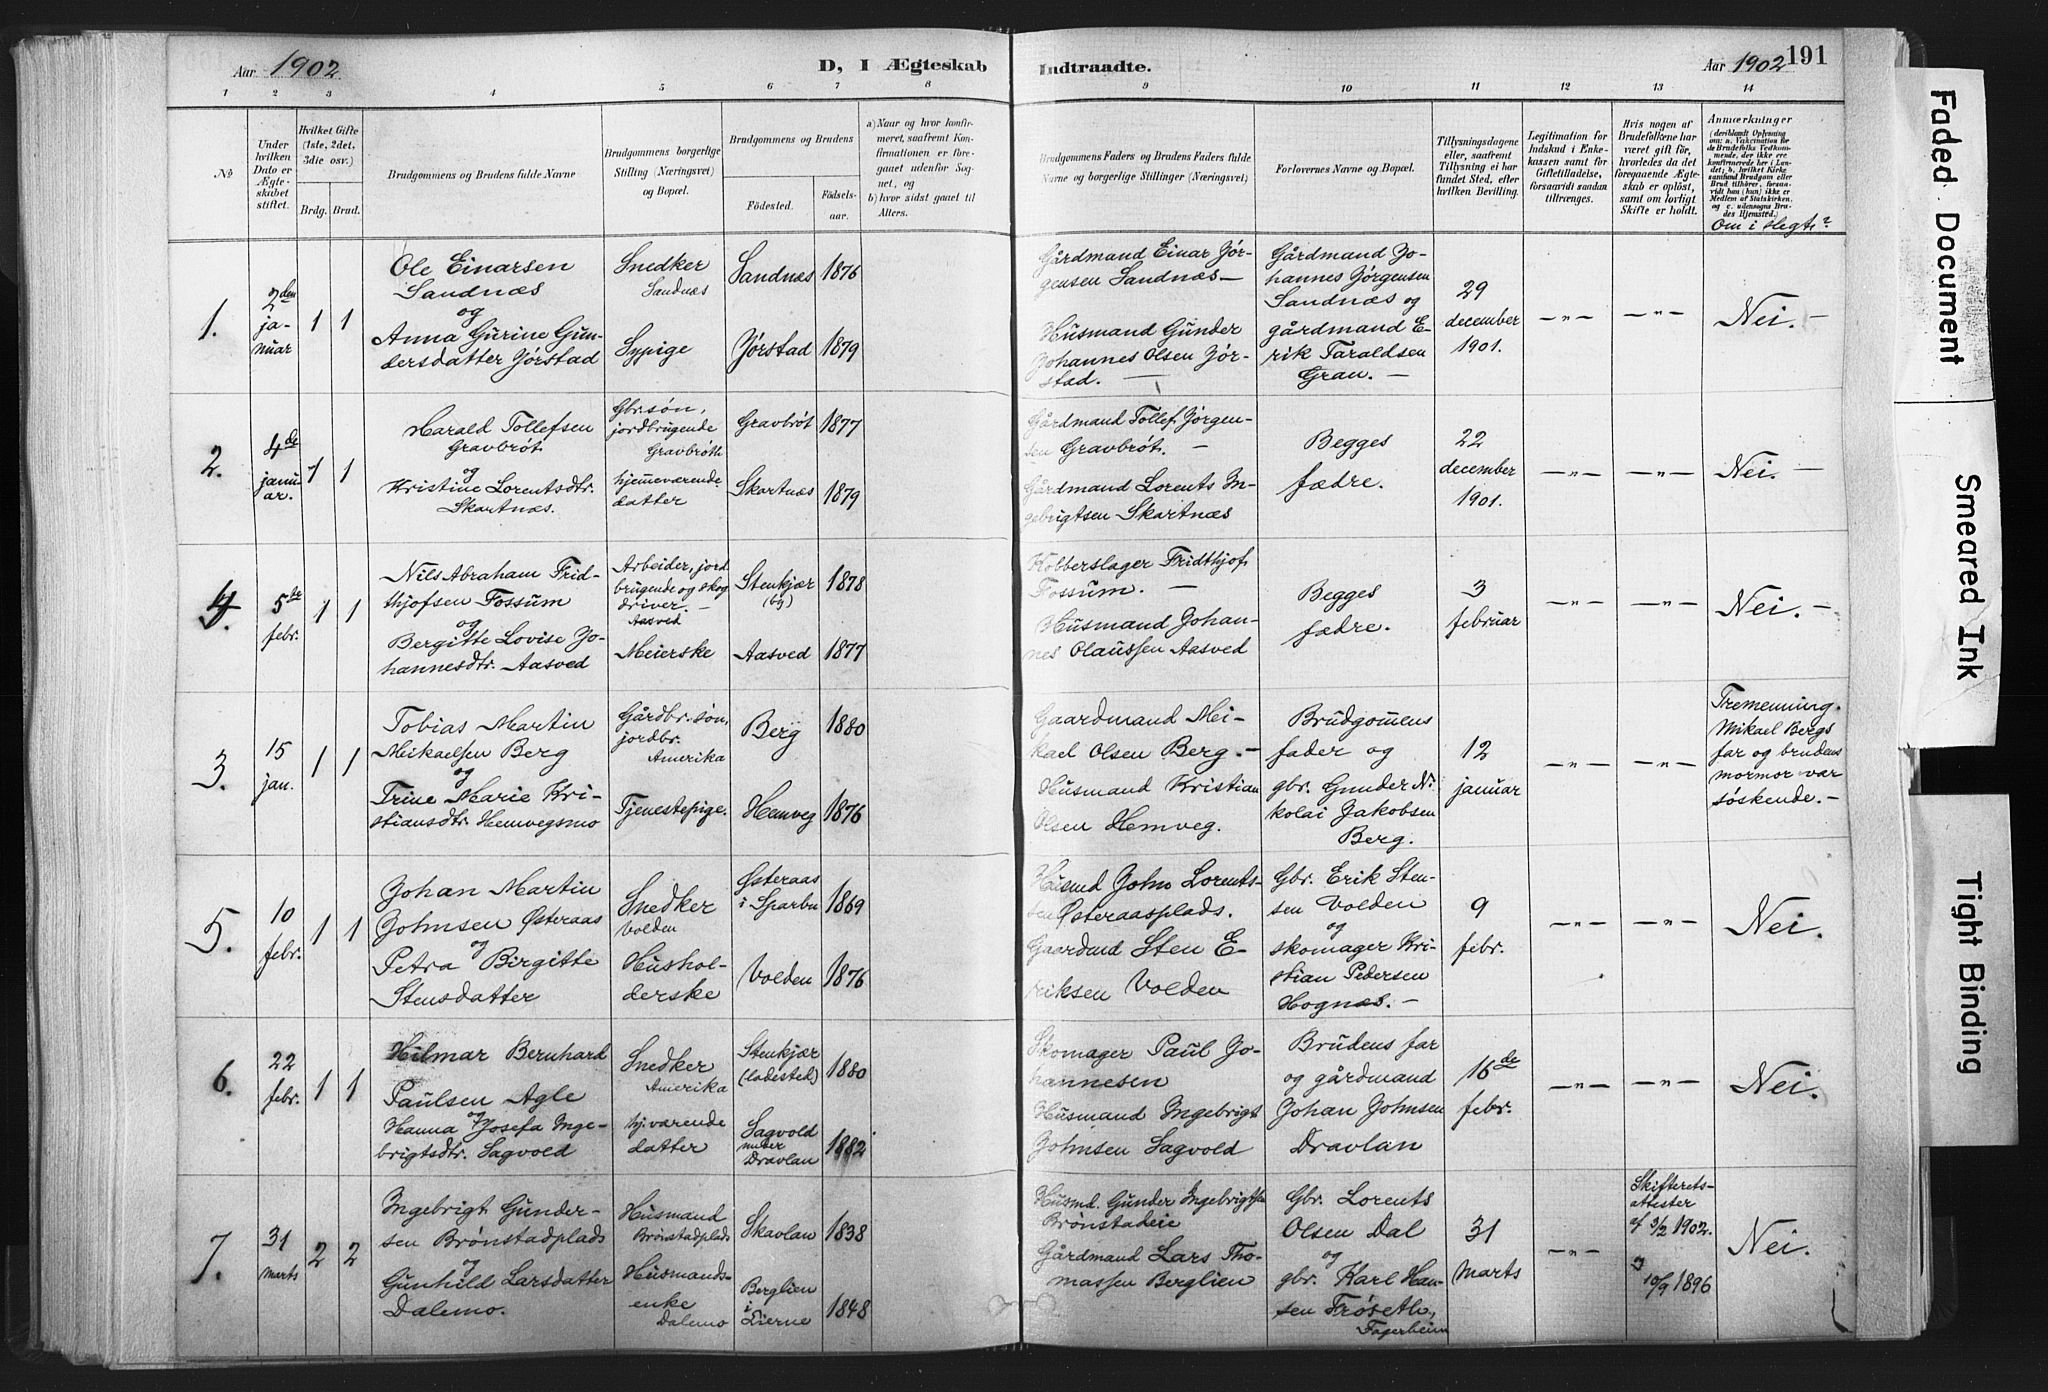 Aar 1902. D, I Ægteskab Indtraadte. Aar 1902 191
1 2 3 4 5 6 7 8 9 10 11 12 13 14
No
Under hvilken Dato er Ægteskabet stiftet.
Hvilket Gifte (1ste, 2det, 3die osv.)
Brdg. Brud.
Brudgommens og Brudens fulde Navne
Brudgommens borgerlige Stilling (Næringsvei) og Bopæl.
Brudgommens og Brudens
Fødested. Fødselsaar.
a) Naar og hvor konfirmeret, saafremt Konfirmationen er foregaaet udenfor Sognet, og
b) hvor sidst gaaet til Alters.
Brudgommens Faders og Brudens Faders fulde Navne og borgerlige Stillinger (Næringsvei)
Forlovernes Navne og Bopæl.
Tillysningsdagene eller, saafremt Tillysning ei har fundet Sted, efter hvilken Bevilling.
Legitimation for Indskud i Enkekassen samt for Giftetilladelse, forsaavidt saadan tiltrænges.
Hvis nogen af Brudefolkene har været gift før, hvorledes da det foregaaende Ægteskab er opløst, samt om lovligt Skifte er holdt.
Anmærkninger
(deriblandt Oplysning om: a. Vakcination for de Brudefolks Vedkommende, der ikke ere konfirmerede her i Landet; b. hvilket Kirkesamfund Brudgom eller Brud tilhører, forsaavidt han (hun) ikke er Medlem af Statskirken, og c. udensogns Brudes Hjemsted.)
Om i slegt?
1.
2den
ja-
nuar
1 1
Ole Einarsen
Sandnæs
og
Anna Gurine Gun-
dersdatter Jørstad
Snedker
Sandnæs
Sypige
Sandnæs 1876
Jørstad 1879
Gårdmand Einar Jør-
gensen Sandnæs —
Husmand Gunder
Johannes Olsen Jør-
stad. —
Gårdmand Jo-
hannes Jørgensen
Sandnæs og
gårdmand E-
rik Taraldsen
Gran. —
29
december
1901.
— " —
— " —
Nei. —
2.
4de
janu-
ar.
1 1
Harald Tollefsen
Gravbrøt
og
Kristine Lorentsdtr.
Skartnæs.
Gbr.søn,
jordbrugende
Gravbrøtt
hjemmeværende
datter
Gravbrøt 1877
Skartnæs 1879
Gårdmand Tollef Jørgen-
sen Gravbrøt. —
Gårdmand Lorents In-
gebrigtsen Skartnæs
Begges
fædre.
22
december
1901.
— " —
— " —
Nei. —
4.
5te
febr.
1 1
Nils Abraham Frid-
thjofsen Fossum
og
Bergitte Lovise Jo-
hannesdtr. Aasved
Arbeider, jord
brugende og skog
driver. —
Aasved
Meierske
Stenkjær 1878
(by)
Aasved 1877
Kobberslager Fridthjof
Fossum. —
Husmand Johan-
nes Olaussen Aasved
Begges
fædre.
3
februar
— " —
— " —
Nei. —
3.
15
jan.
1 1
Tobias Martin
Mikaelsen Berg
og
Trine Marie Kri-
stiansdtr. Hemvegsmo
Gårdbr.søn,
jordbr.
Amerika
Tjenestepige.
Berg 1880
Hemveg 1876
Gaardmand Mi-
kael Olsen Berg. —
Husmand Kristian
Olsen Hemveg.
Brudgommens
fader og
gbr. Gunder Ni-
kolai Jakobsen
Berg.
12
januar
— " —
— " —
Tremenning.
Mikael Bergs
far og brudens
mormor var
søskende. —
5.
10
febr.
1 1
Johan Martin
Johnsen Østeraas
og
Petra Birgitte
Stensdatter
Snedker
Volden
Hushol-
derske
Østeraas
i Sparbu 1869
Volden 1876
Husmd John Lorents-
sen Østeraasplads.
Gaardmd Sten E-
riksen Volden
Gbr. Erik Sten-
sen Volden
og
skomager Kri-
stian Pedersen
Hognæs. —
9
febr.
— " —
— " —
Nei.
6.
22
febr.
1 1
Hilmar Bernhard
Paulsen Agle
og
Hanna Josefa Inge-
brigtsdtr. Sagvold
Snedker
Amerika
hj.værende
datter
Stenkjær
(ladested) 1880
Sagvold
under
Dravlan 1882
Skomager Paul Jo-
hannesen
Husmand Ingebrigt
Johnsen Sagvold
Brudens far
og gårdmand
Johan Johnsen
Dravlan
16de
febr.
— " —
— " —
Nei.
7.
31
marts
2 2
Ingebrigt Gunder-
sen Brønstadplads
og
Gunhild Larsdatter
Dalemo.
Husmand
Brønstadplads
Husmands-
enke
Dalemo
Skavlan 1838
Berglien
i
Lierne 1848
Husmd. Gunder Ingebrigtsen
Brønstadeie
Gårdmand Lars Tho-
massen Berglien
Gbr. Lorents
Olsen Dal
og
gbr. Karl Han-
sen Frøseth,
Fagerheim
31
marts
— " —
Skifterets-
attester
af 3/2 1902.
10/9 1896
Nei.
Faded Document
Smeared Ink
Tight Binding